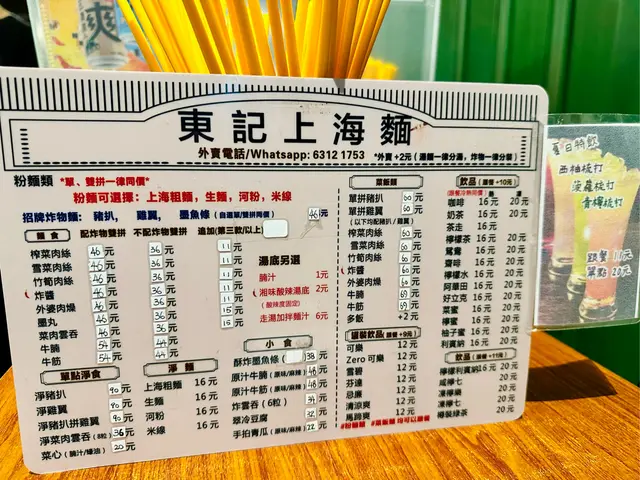 爽
東記上海麵
外賣電話/Whatsapp: 6312 1753
*外賣 +2元 (湯麵一律分湯，炸物一律分裝)
粉麵類 *單、雙拼一律同價*
粉麵可選擇：上海粗麵，生麵，河粉，米線
招牌炸物麵：豬扒，雞翼，墨魚條 (自選單/雙拼同價) 46元
麵食 配炸物雙拼 不配炸物雙拼 追加(第三款/以上)
榨菜肉絲 46元 36元 11元
雪菜肉絲 46元 36元 11元
竹筍肉絲 46元 36元 11元
炸醬 46元 36元 11元
外婆肉燥 46元 36元 11元
墨丸 46元 36元 15元
菜肉雲吞 46元 36元 15元
牛腩 54元 44元
牛筋 54元 44元
湯底另選
腩汁 1元
湘味酸辣湯底 2元
(酸辣度固定)
走湯加拌麵汁 6元
單點淨食
淨豬扒 90元
淨雞翼 90元
淨豬扒拼雞翼 90元
淨菜肉雲吞 (8粒) 36元
菜心 (腩汁/蠔油) 20元
上海粗麵 16元
生麵 16元
河粉 16元
米線 16元
小食
酥炸墨魚條 38元
原汁牛腩 (原味/麻辣) 48元
原汁牛筋 (原味/麻辣) 48元
炸雲吞 (6粒) 34元
翠冷豆腐 32元
手拍青瓜 (原味/麻辣) 22元
菜飯類
單拼豬扒 60元
單拼雞翼 60元
(以下均配豬扒/雞翼)
榨菜肉絲 60元
雪菜肉絲 60元
竹筍肉絲 60元
炸醬 60元
外婆肉燥 60元
牛腩 69元
牛筋 69元
多飯 +2元
罐裝飲品 (跟餐 +9元)
可樂 12元
Zero 可樂 12元
雪碧 12元
芬達 12元
忌廉 12元
清涼爽 12元
馬蹄爽 12元
#粉麵類 #菜飯類 均可以跟餐
飲品 (跟餐 +10元)
(跟餐冷熱同價)
咖啡 16元 20元
奶茶 16元 20元
茶走 16元
檸檬茶 16元 20元
鴛鴦 16元 20元
齋啡 16元 20元
檸檬水 16元 20元
阿華田 16元 20元
好立克 16元 20元
菜蜜 16元 20元
檸蜜 16元 20元
柚子蜜 16元 20元
利賓納 16元 20元
飲品 (跟餐 +11元)
檸檬利賓納 16元 20元
咸檸七 20元
凍檸檬 20元
凍檸七 20元
樽裝綠茶 20元
夏日特飲
西柚梳打
菠蘿梳打
青檸梳打
跟餐 11元
單點 20元